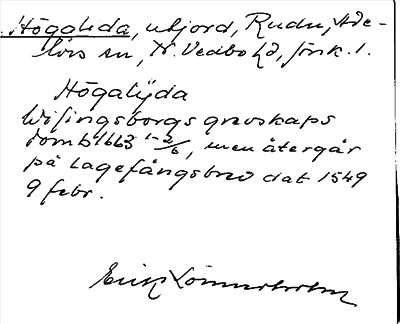 Högaleda, utjord, Rudu, Ade-
lövs sn, N. Vedbo hd, Jönk. l.
Högalÿda
Wisingsborgs grevskaps
domb 1663 1-2/6, men återgår
på lagefångsbrev dat 1549
9 febr.
Erik